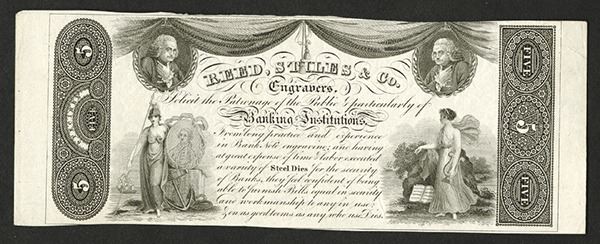 5
FIVE
5
REED, STILES & Co.
Engravers.
Solicit the Patronage of the Public & particularly of
Banking Institutions.
From long practice and experience
in Bank Note engraving; and having
at great expense of time & labor executed
a variety of Steel Dies for the security
of Banks, they feel confident of being
able to furnish Bills equal in security
and workmanship to any in use;
& on as good terms as any who use Dies.
FIVE
5
FIVE